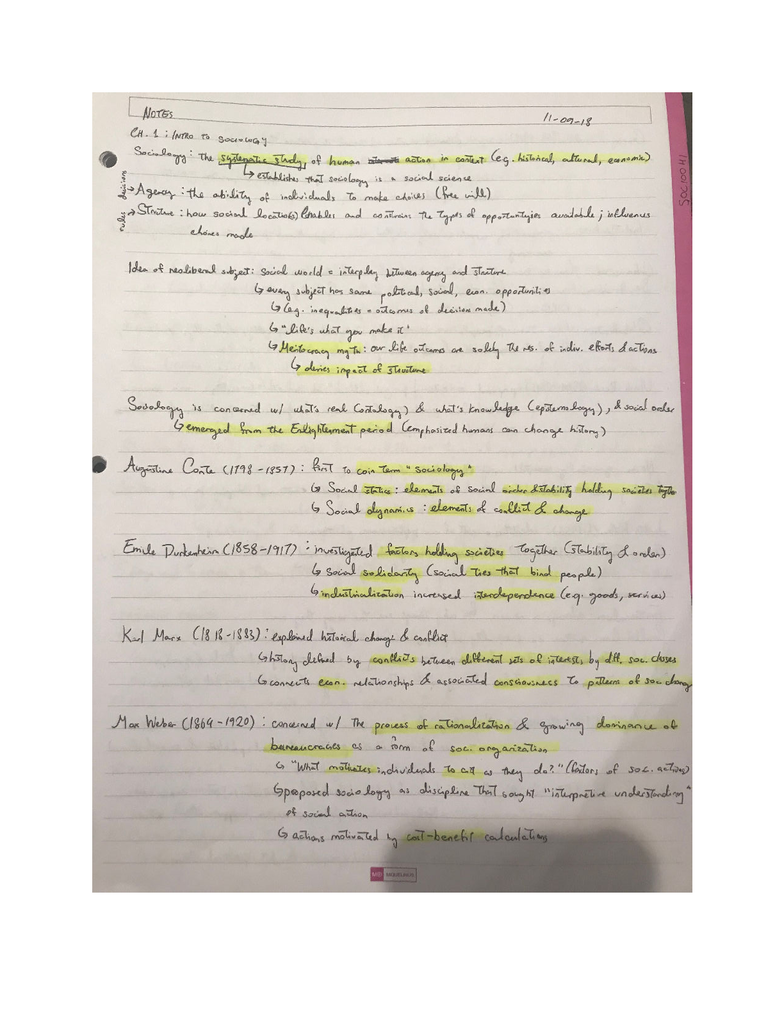 NOTES
11-09-18
CH. 1 : INTRO TO SOCIOLOGY
SOC100H1
Sociology : the systematic study, of human action in context (e.g. historical, cultural, economic)
↳ establishes that sociology is a social science
decisions
→ Agency : the ability of individuals to make choices (free will)
rules
→ Structure : how social location(s) enables and constrains the types of opportunities available ; influences
choices made
Idea of neoliberal subject : social world = interplay between agency and structure
↳ every subject has same political, social, econ. opportunities
↳ (e.g. inequalities = outcomes of decision made)
↳ "life's what you make it"
↳ Meritocracy myth : our life outcomes are solely the res. of indiv. efforts & actions
↳ denies impact of structure
Sociology is concerned w/ what's real (ontology) & what's knowledge (epistemology), & social order
↳ emerged from the Enlightenment period (emphasized humans can change history)
Augustine Comte (1798-1857) : first to coin term "sociology"
↳ Social statics : elements of social order & stability holding societies togthr
↳ Social dynamics : elements of conflict & change
Emile Durkenheim (1858-1917) : investigated factors holding societies together (stability & order)
↳ social solidarity (social ties that bind people)
↳ industrialization increased interdependence (e.g. goods, services)
Karl Marx (1818-1883) : explained historical change & conflict
↳ history defined by conflicts between different sets of interests, by diff. soc. classes
↳ connects econ. relationships & associated consciousness to patterns of soc. change
Max Weber (1864-1920) : concerned w/ the process of rationalization & growing dominance of
bureaucracies as a form of soc. organization
↳ "What motivates individuals to act as they do?" (factors of soc. action)
↳ proposed sociology as discipline that sought "interpretive understanding"
of social action
↳ actions motivated by cost-benefit calculations